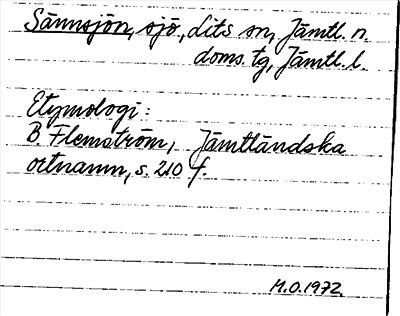 Sännsjön, sjö, dits sn, Jämtl. n.
doms. tg, Jämtl. l.
Etymologi:
B. Flemström, Jämtländska
ortnamn, s. 210 f.
M.O. 1972